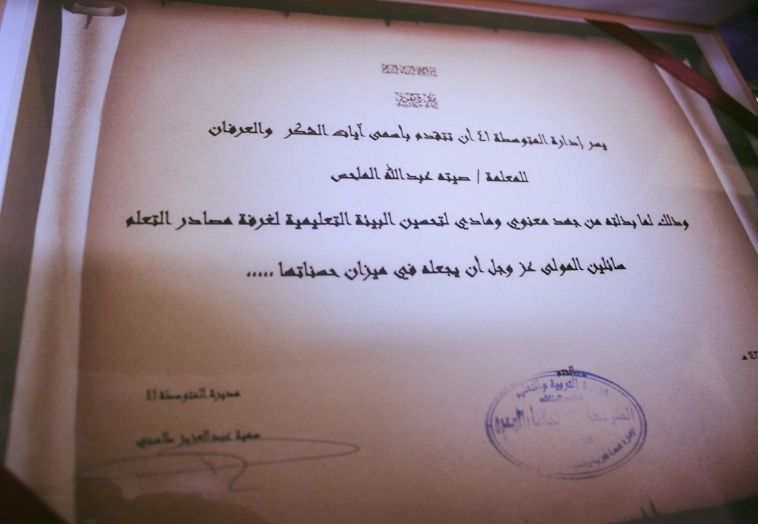 يسر إدارة المتوسطة ٤١ أن تتقدم بأسمى آيات الشكر والعرفان
للمعلمة / صيته عبدالله الملحص
وذلك لما بذلته من جهد معنوي ومادي لتحسين البيئة التعليمية لغرفة مصادر التعلم
سائلين المولى عز وجل أن يجعله في ميزان حسناتها .....
مديرة المتوسطة ٤١
عبدالعزيز
وزارة التربية والتعليم